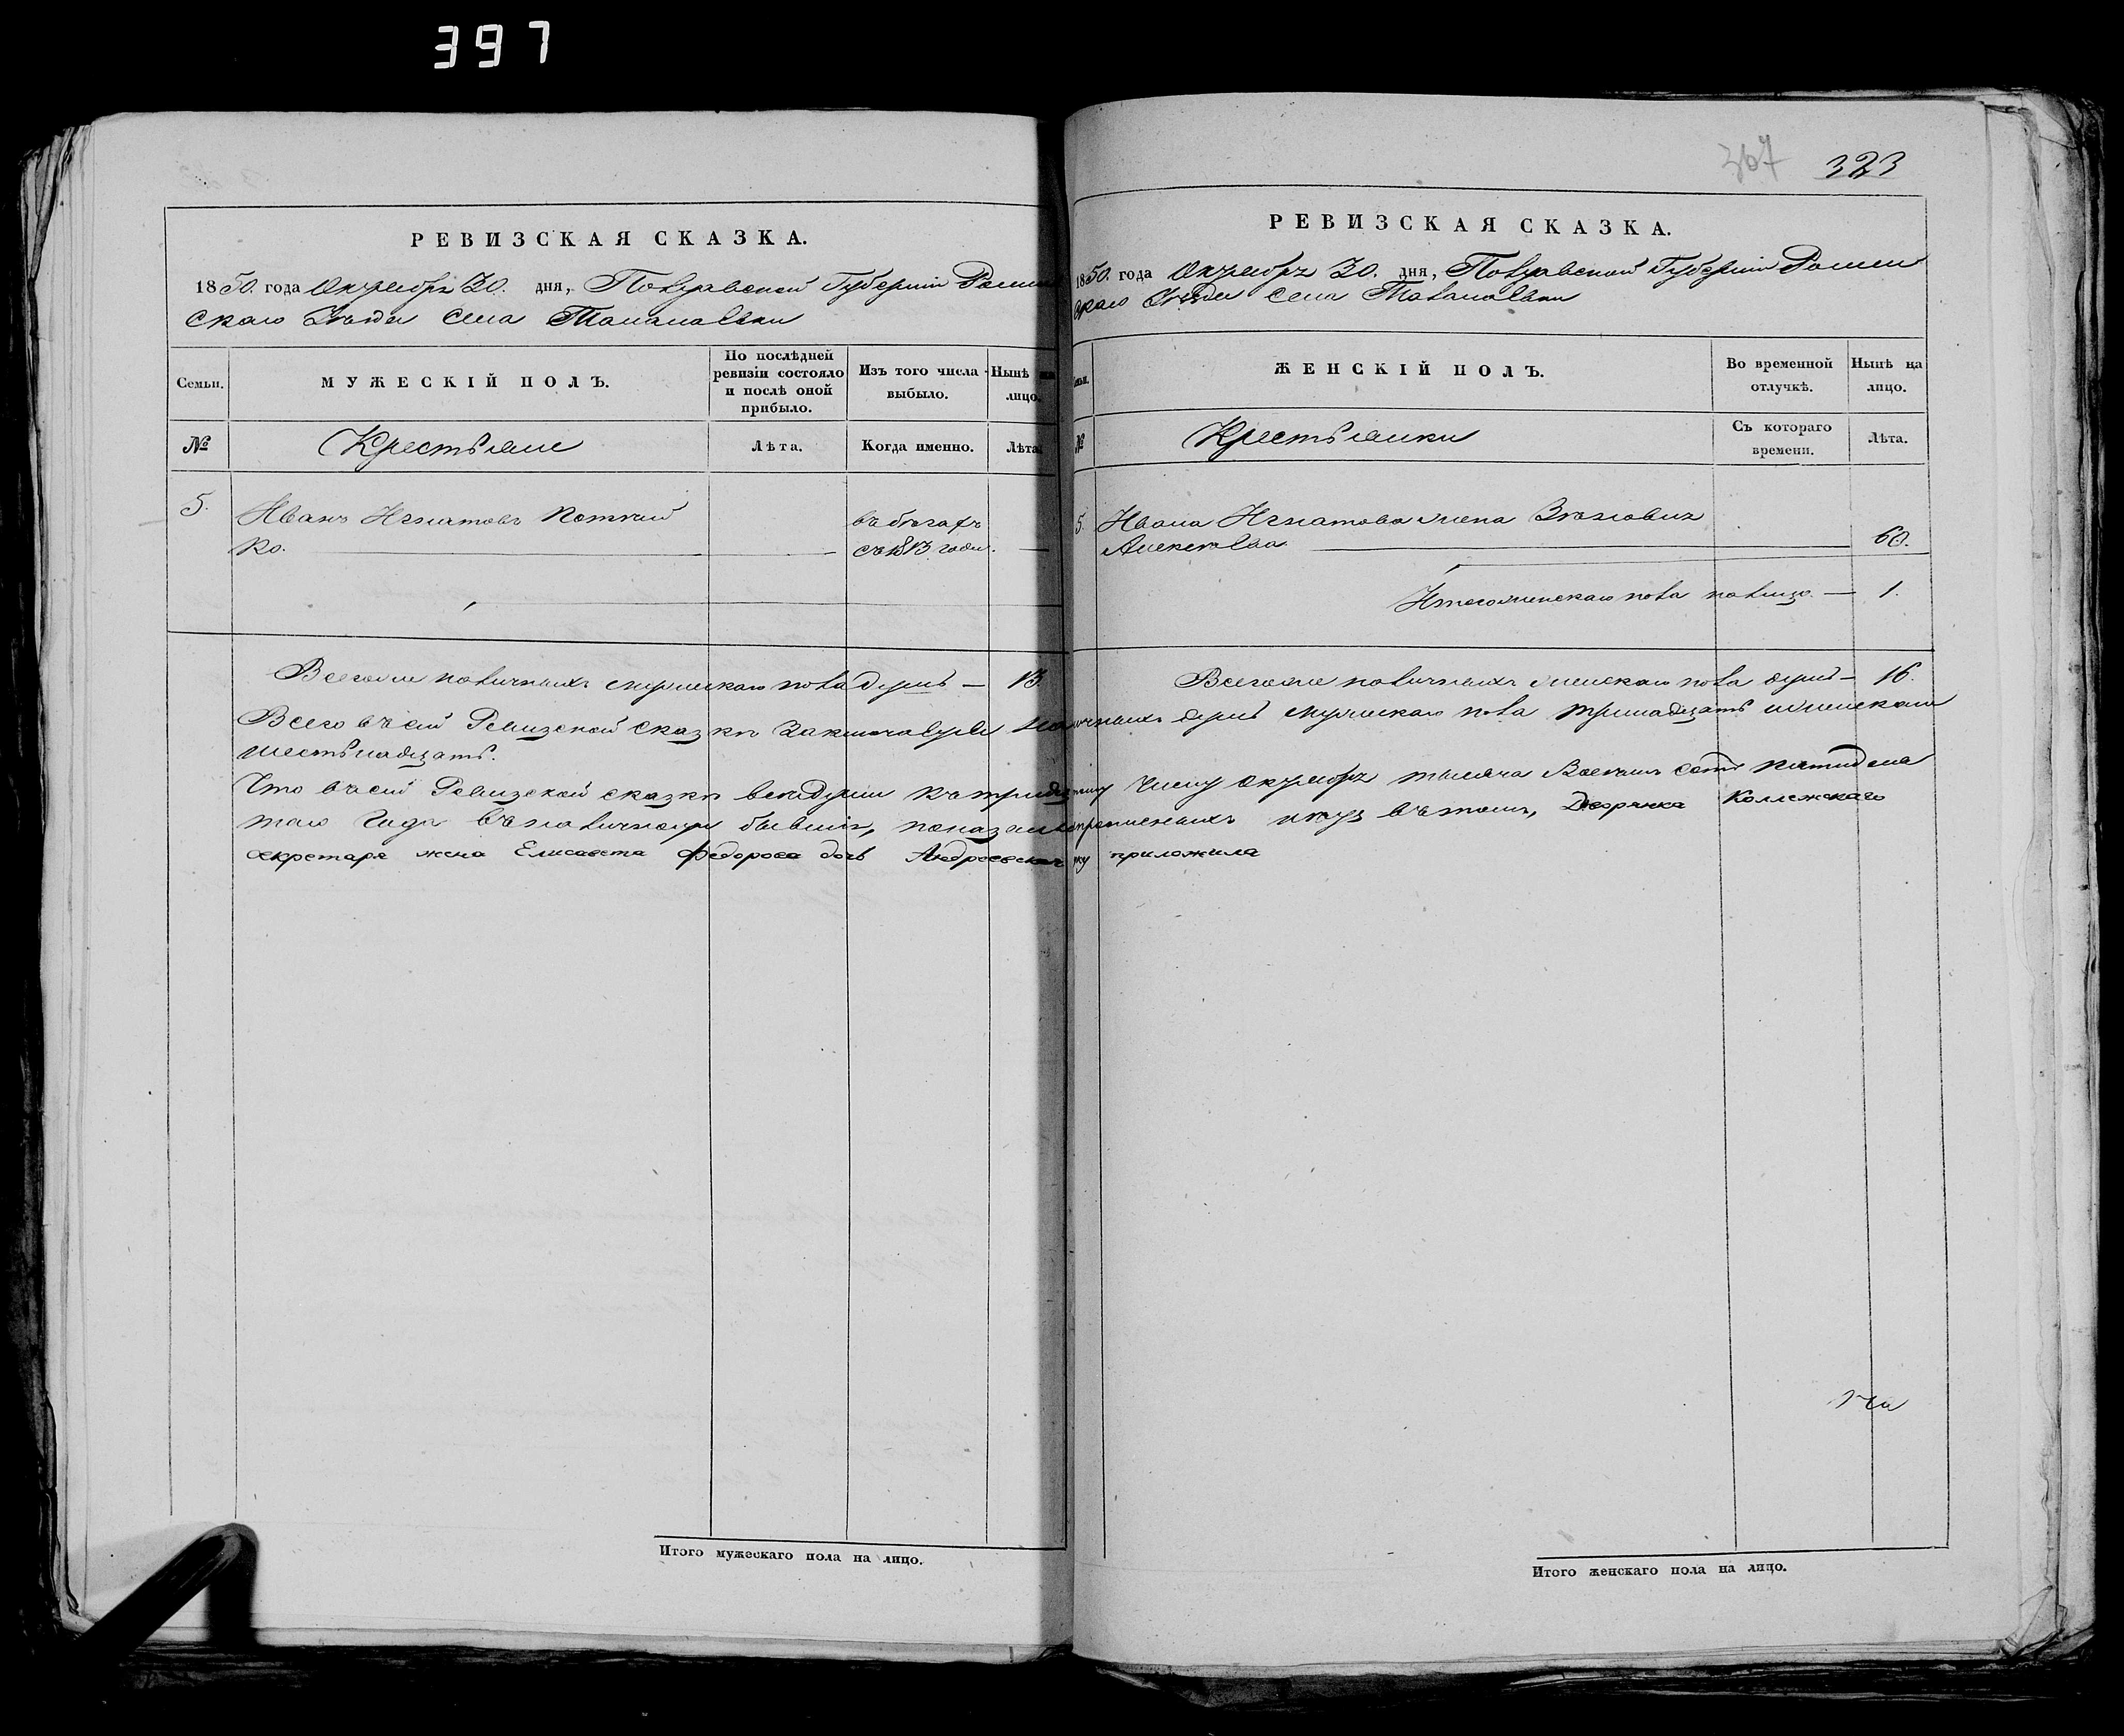 397
367 323
РЕВИЗСКАЯ СКАЗКА.
1850. года Октября 30. дня, Полтавской Губернии Ромен
скаго Уезда Села Талалаевки
Семьи. МУЖЕСКІЙ ПОЛЪ. По послѣдней ревизіи состояло и послѣ оной прибыло. Изъ того числа выбыло. Нынѣ на лицо.
№ Крестьяне Лѣта. Когда именно. Лѣта.
5. Иванъ Игнатовъ въ бегахъ
ко. — съ 1813 года. —
Всего же наличныхъ мужескаго пола душъ — 13.
РЕВИЗСКАЯ СКАЗКА.
1850. года Октября 30. дня, Полтавской Губернии Ромен
скаго Уезда села Талалаевки
Семьи. ЖЕНСКІЙ ПОЛЪ. Во временной отлучкѣ. Нынѣ на лицо.
№ Крестьянки Съ котораго времени. Лѣта.
5. Ивана Игнатова жена
Алексеева — 60.
Итого женскаго пола налицо. — 1.
Всего же наличныхъ женскаго пола душъ — 16.
Всего въ сей Ревизской сказке заключается наличныхъ душъ мужескаго пола тринадцать и женскаго
шестьнадцать.
Что въ сей Ревизской сказке все души къ тридцатому числу октября тысяча восемь сотъ пятидеся
таго года въ наличности бывшія, показаны и прописныхъ нетъ въ томъ, Дворянка Коллежскаго
секретаря жена Елисавета Федорова дочь Андреевская руку приложила
Итого мужескаго пола на лицо.
Итого женскаго пола на лицо.